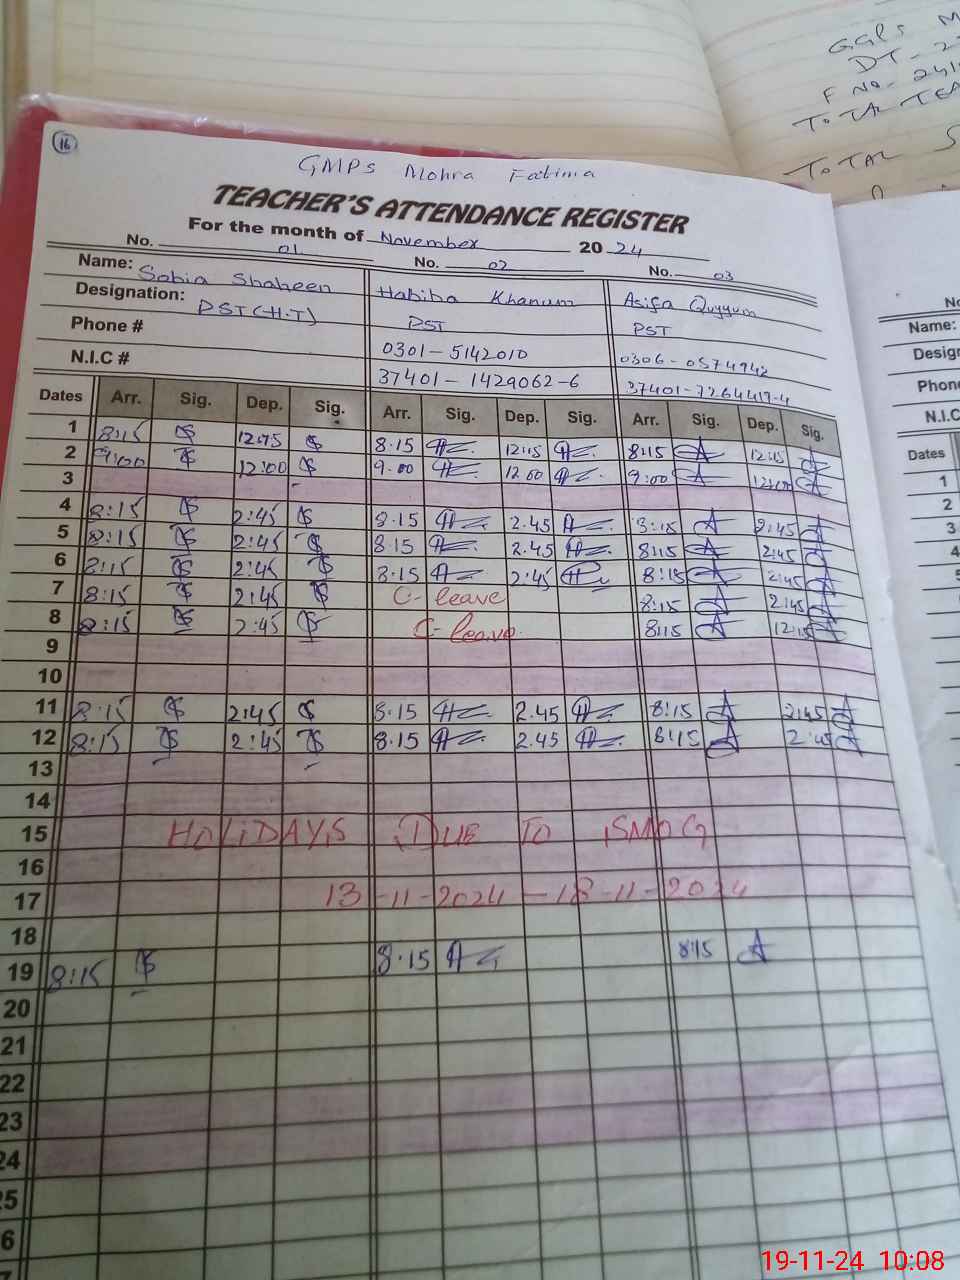 GGPS M
DT-2
F NO-24/
TOTAL TEA
TOTAL S
16
GMPS Mohra Fatima
TEACHER'S ATTENDANCE REGISTER
For the month of November 2024
No. 01 No. 02 No. 03
Name: Sobia Shaheen Habiba Khanum Asifa Quyyum
Designation: PST (H.T) PST PST
Phone # 0301-5142010 0306-0574942
N.I.C # 37401-1429062-6 37401-7264417-4
Dates Arr. Sig. Dep. Sig. Arr. Sig. Dep. Sig. Arr. Sig. Dep. Sig.
1 8:15 12:15 8.15 12:15 8:15 12:15
2 9:00 12:00 9.00 12.00 9:00 12:00
3
4 8:15 2:45 8.15 2.45 8:15 2:45
5 8:15 2:45 8.15 2.45 8:15 2:45
6 8:15 2:45 8.15 2:45 8:15 2:45
7 8:15 2:45 C-leave 8:15 2:45
8 8:15 2:45 C-leave 8:15 12:15
9
10
11 8:15 2:45 8.15 2.45 8:15 2:45
12 8:15 2:45 8.15 2.45 8:15 2:45
13
14
15 HOLIDAYS DUE TO SMOG
16
17 13-11-2024 - 18-11-2024
18
19 8:15 8.15 8:15
20
21
22
23
24
25
6
No
Name:
Design
Phon
N.I.C
Dates
1
2
3
4
5
19-11-24 10:08